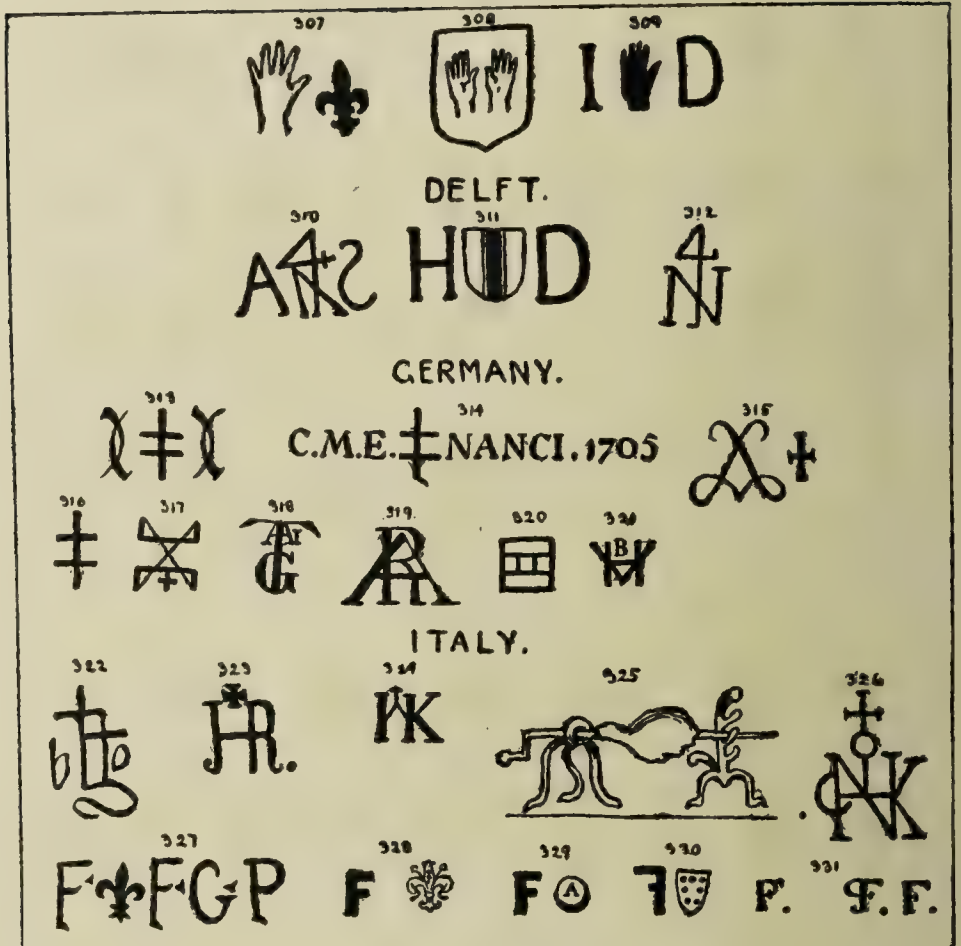 307 308 309
I D
DELFT.
310 311 312
H D
4 N
GERMANY.
313 314 315
C.M.E. NANCI. 1705
316 317 318 319 320 321
G
B
ITALY.
322 323 324 325 326
b
HR.
K
NK
327 328 329 330 331
F F G P F F A F F. F. F.